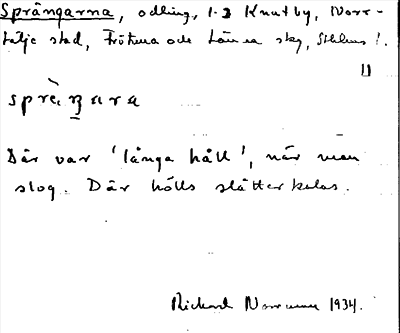 Språngarna, odling, 1-3 Knutby, Norr-
telje stad, Frötuna och Länna skg, Sthlms l.
U
språ̀ŋara
Där var 'långa håll', när man
slog. Där hölls slåtterkalas.
Rickard 1934.